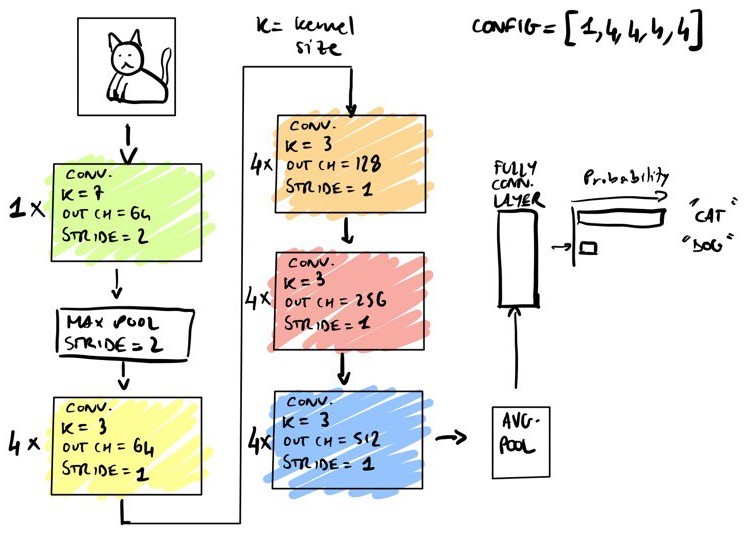 K = kernel
size
CONFIG = [1, 4, 4, 4, 4]
1 x
CONV.
K = 7
OUT CH = 64
STRIDE = 2
MAX POOL
STRIDE = 2
4 x
CONV.
K = 3
OUT CH = 64
STRIDE = 1
4x
CONV.
K = 3
OUT CH = 128
STRIDE = 1
4x
CONV.
K = 3
OUT CH = 256
STRIDE = 1
4x
CONV.
K = 3
OUT CH = 512
STRIDE = 1
AVG.
POOL
FULLY
CONN.
LAYER
Probability
"CAT"
"DOG"